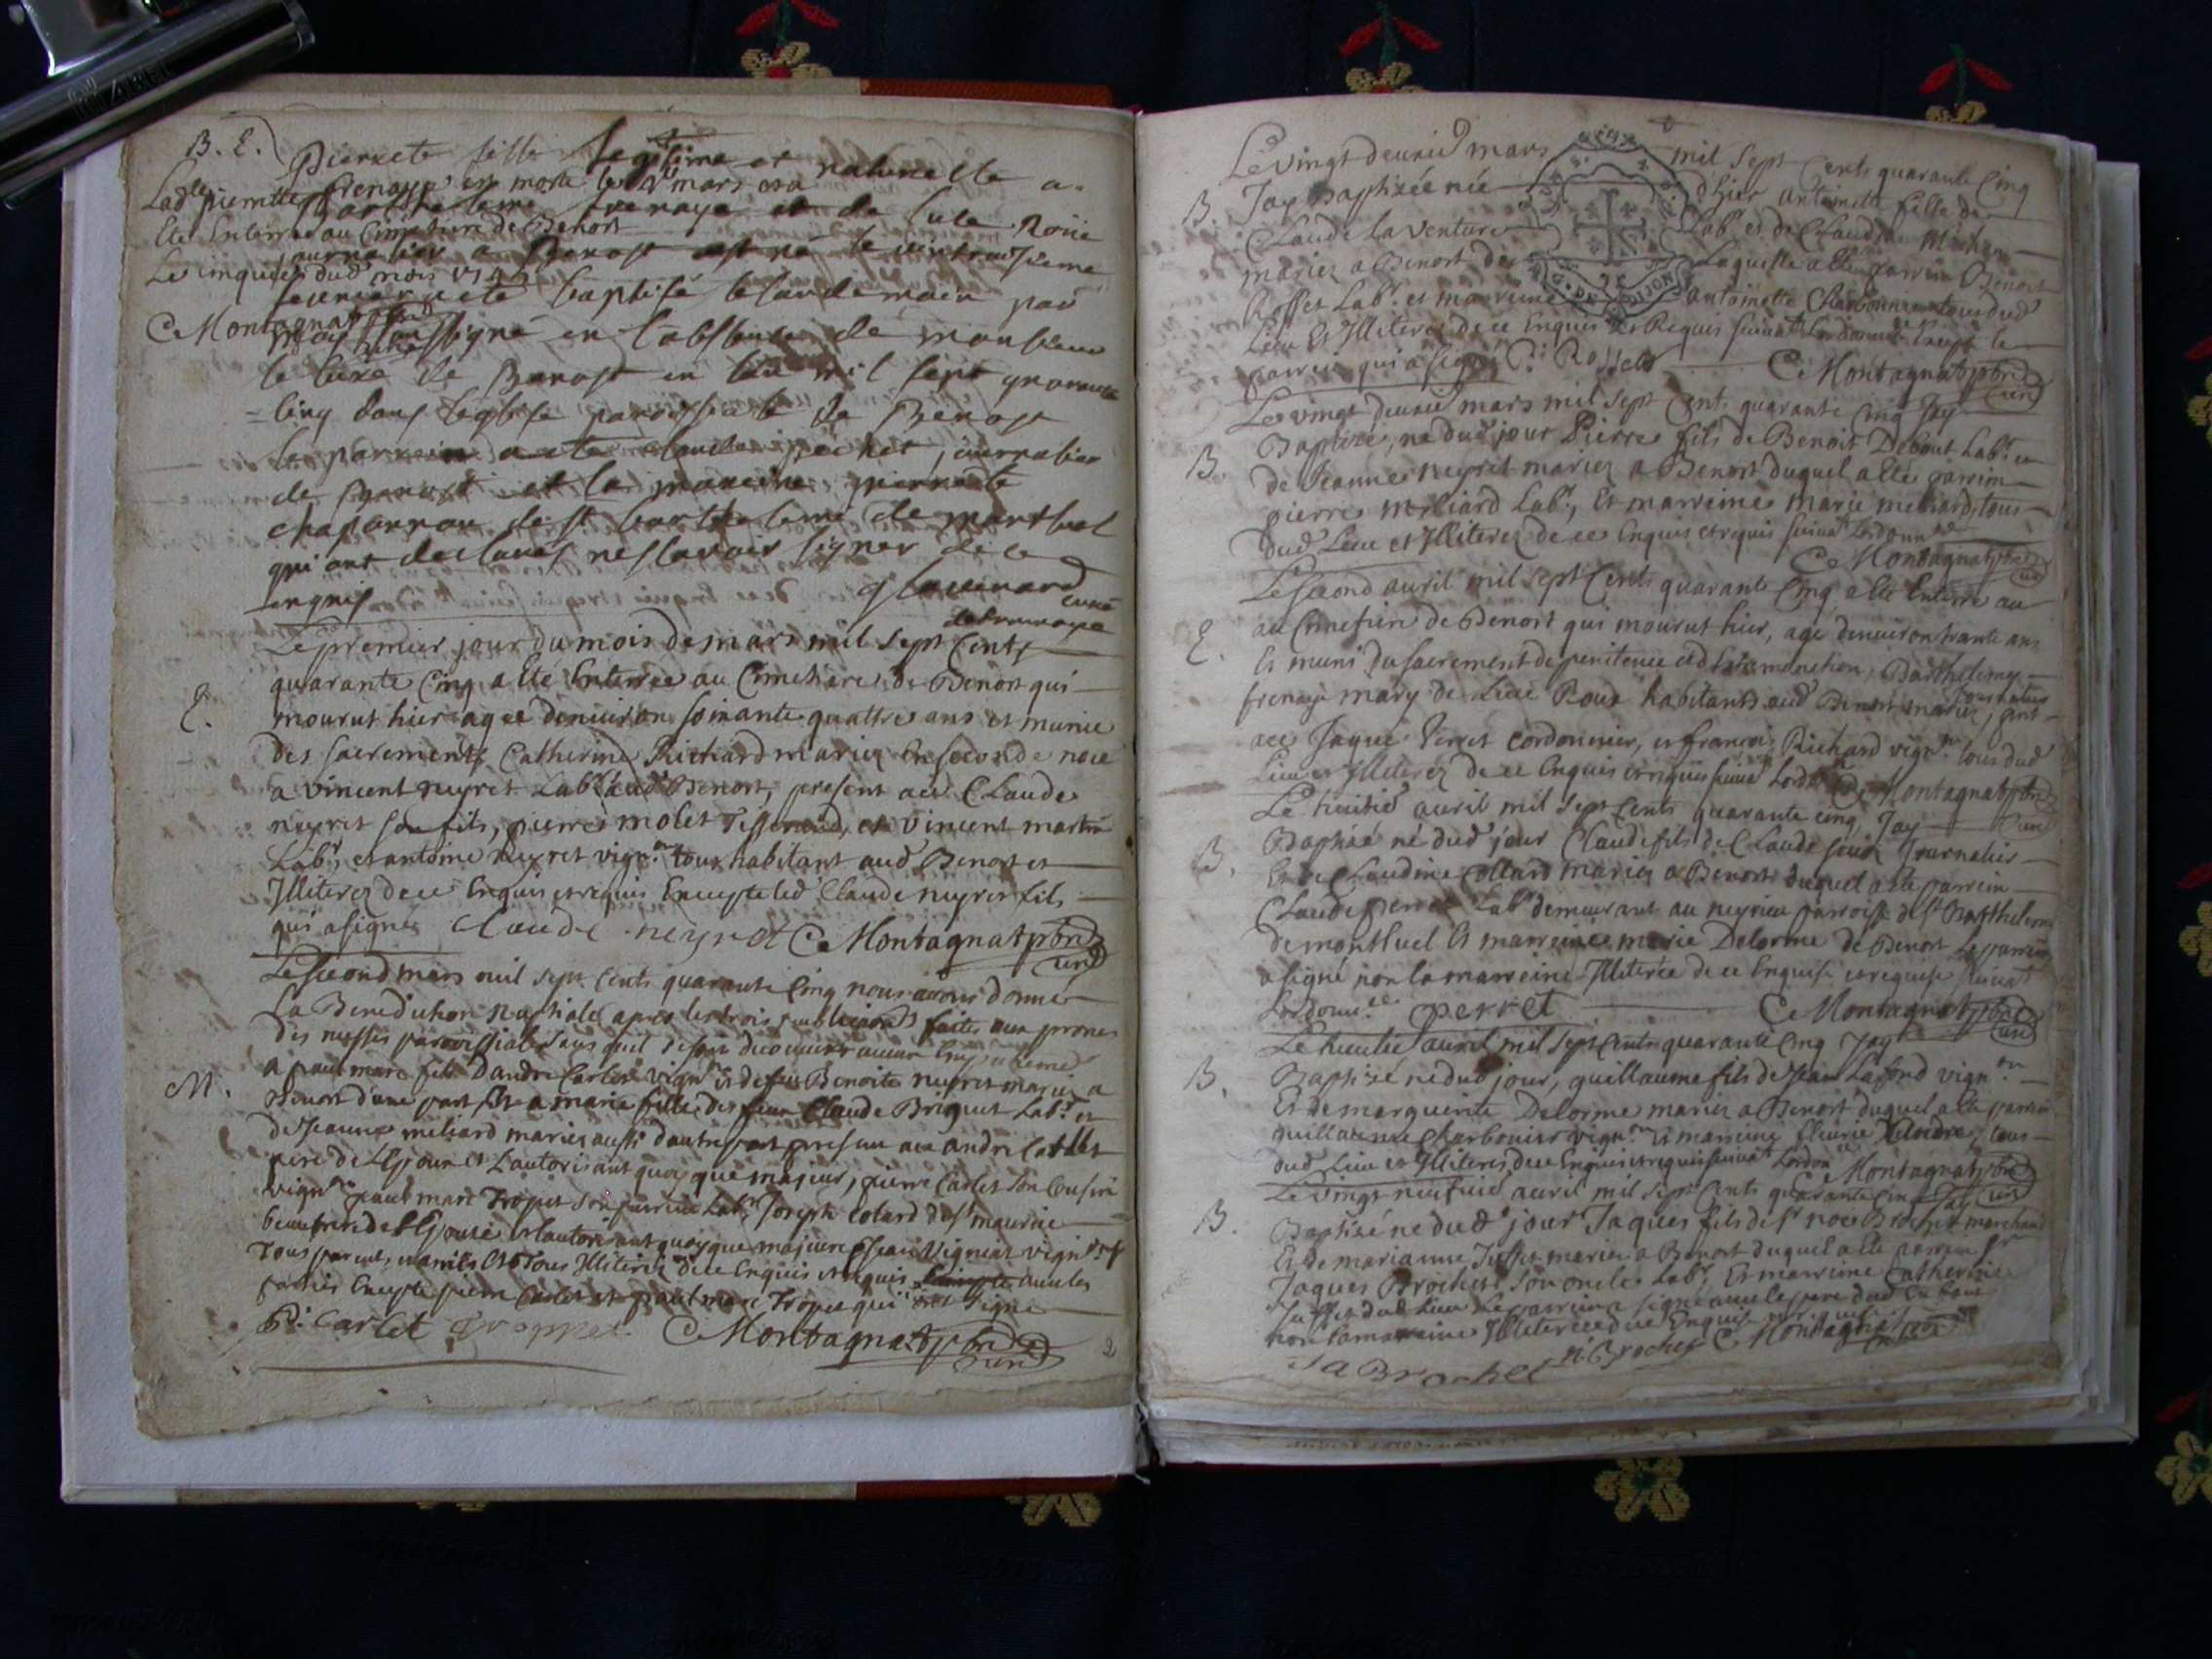 B. E.
Pierrete fille legitime et naturelle a
Lad.le pierrette frenaye est morte le 4e mars et a
Barthelemi frenaye et de luce Roüe
Eté Enterrée au Cimetiere de Benost
journalier a Benost est né le vintroisieme
Le cinquieme dud. mois 1745
fevrier a été baptisé le landemain par
C Montagnat pbre curé
moy soussigné en l'abssence de monsieur
le curé de Benost en l'an mil sept quarante
=cinq dans l'eglise paroissiale de Benost
le parrain a ete claude pechet, journalier
de Benost et la maraine pierrette
chaparrou de st barthelemi de montluel
qui ont declarés ne scavoir signer de ce
enquis
curé
Le premier jour du mois de mars mil sept Cents
quarante Cinq a Eté Enterrée au Cimetiere de Benost qui
E.
mourut hier agée denviron soixante quattre ans et munie
des sacrements Catherine Richard mariez En seconde noce
a vincent neyret Lab.r aud. Benost, present acc Claude
neyret son fils, pierre molet Tisserand, et vincent martin
Lab.r, et antoine Neyret vign.on tous habitant aud Benost et
Illiterez de ce Enquis et requis Excepte led Claude neyret fils
qui a signé claude neyret C Montagnat pbre
curé
Le second mars mil sept Cents quarante Cinq nous avons donné
La Benediction nuptiale apres les trois publications faites aux prones
des messes paroissiales sans quil se soit decouvert aucun Empechement
M.
a paul marc fils d'andré Carlet vign.on et de feue Benoite neyret mariez a
Benost d'une part Et a marie fille de feu Claude Briguet Lab.r et
de Jeanne meliard mariez aussi d'autre part present acc andré Carlet
pere de L'Epoux et L'autorisant quoy que majeur, pierre Carlet son Cousin
vign.on paul marc Tropet son parrein Lab.r Joseph Colard de st maurice
beaufrere de l'Epouse et l'autorisant quoyque majeure Jean Vignat vign.on
Tous parents, et amis Et Tous Illiterez de ce Enquis et requis avec les
parties Excepte pierre Carlet et paul marc Tropet qui ont signé
P. Carlet Troppet C Montagnat pbre
curé
2
Le vingt deuxie mars mil sept Cents quarante Cinq
B.
Jay Baptizée née d'hier antoinette fille de
Claude La venture Lab.r et de Claudine
mariez a Benost de Laquelle a Eté parrein Benoit
Rosset Lab.r et marreine antoinette Charbonnet tous dud
Lieu Et Illiterez de ce Enquis et Requis suivant Lordonn.ce Excepté le
parrein qui a signé B. Rosset C Montagnat pbre
curé
DIJON
Le vingt deuxie mars mil sept Cents quarante Cinq Jay
B.
Baptizé, né dud jour Pierre fils de Benoit Debout Lab.r et
de Jeanne neyret mariez a Benost duquel a Eté parrein
pierre Meliard Lab.r, Et marreine marie meliard, tous
dud Lieu et Illiterez de ce Enquis et requis suivant Lordonn.ce
C Montagnat pbre
curé
Le second avril mil sept Cents quarante Cinq a Eté Enterré au
E.
au Cimetiere de Benost qui mourut hier, agé denviron trante ans
Et muni du sacrement de penitence et d'Extremonction, Barthelemy
frenaye mary de Luce Roux habitants aud Benost mariez, pnt
Journalier
acc Jaque Verret Cordonnier, et francois Richard vign.on tous dud
Lieu et Illiterez de ce Enquis et requis suivant Lord.ce C Montagnat pbre
curé
Le huitie avril mil sept Cents quarante cinq Jay
B.
Baptizé né dud jour Claude fils de Claude Journalier
Et de Claudine Collard mariez a Benost duquel a Eté parrein
Claude perret Lab.r demeurant au neyrieu parroisse de st Barthelemy
de montluel Et marreine marie Delorme de Benost Le parrein
a signé non la marreine Illiterée de ce Enquise et requise suivant
Lordonn.ce perret C Montagnat pbre
curé
Le avril mil sept Cents quarante Cinq Jay
B.
Baptizé né dud jour, guillaume fils de Jean Lafond vign.on
Et de marguerite Delorme mariez a Benost duquel a Eté parrein
guillaume Charbonier vign.on Et marreine fleurie tous
dud Lieu et Illiterez de ce Enquis et requis suivant Lordon.ce C Montagnat pbre
Le vingt neufvie avril mil sept Cents quarante Cinq Jay curé
B.
Baptizé né dud jour Jaques fils de sr noé Brochet marchand
Et de marianne Juffet mariez a Benost duquel a Eté parrein sr
Jaques Brochet son oncle Lab.r, Et marreine Catherine
Juffet dud Lieu Le parrein a signé avec le pere dud Enfant
non la marreine Illiterée de ce Enquise et requise
Ja Brochet N. Brochet C Montagnat pbre